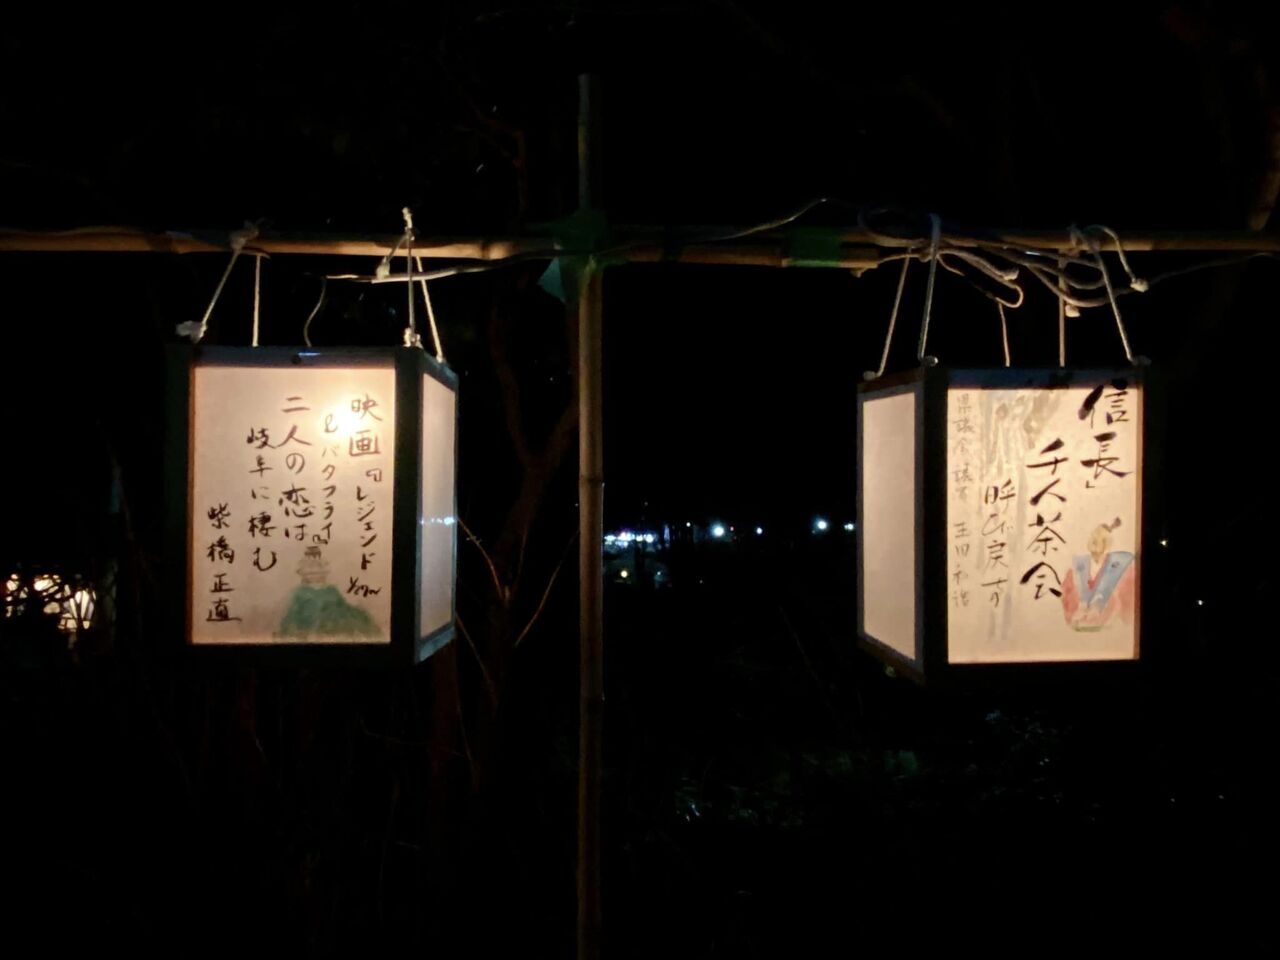 映画『レジェンド
&バタフライ』
1/27〜
二人の恋は
岐阜に棲む
柴橋正直
信長」
千人茶会
呼び戻す
県議会議員 玉田和浩